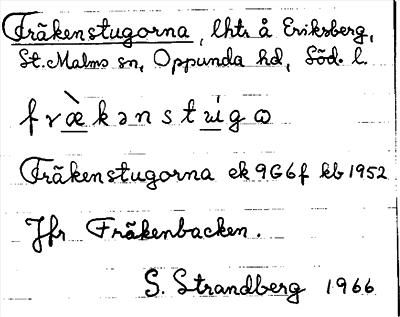 Fräkenstugorna, lht å Eriksberg,
St. Malms sn, Oppunda hd, Söd. l.
fræ̀kənstúgɷ
Fräkenstugorna ek 9G6f kb 1952
Jfr Fräkenbacken.
S. Strandberg 1966